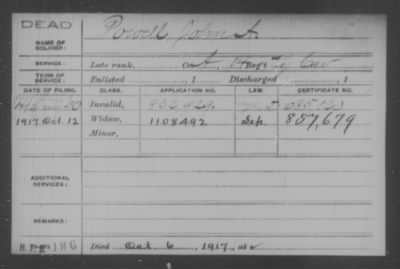 DEAD
Powell, John A.
NAME OF SOLDIER:
SERVICE: Late rank, Co. A, Reg't Ky Cav
TERM OF SERVICE: Enlisted , 1 Discharged , 1
DATE OF FILING. CLASS. APPLICATION NO. LAW. CERTIFICATE NO.
Invalid, 832424
1917 Oct. 12 Widow, 1108492 Sep. 857,679
Minor,
ADDITIONAL SERVICES:
REMARKS:
Died Oct 6, 1917, at